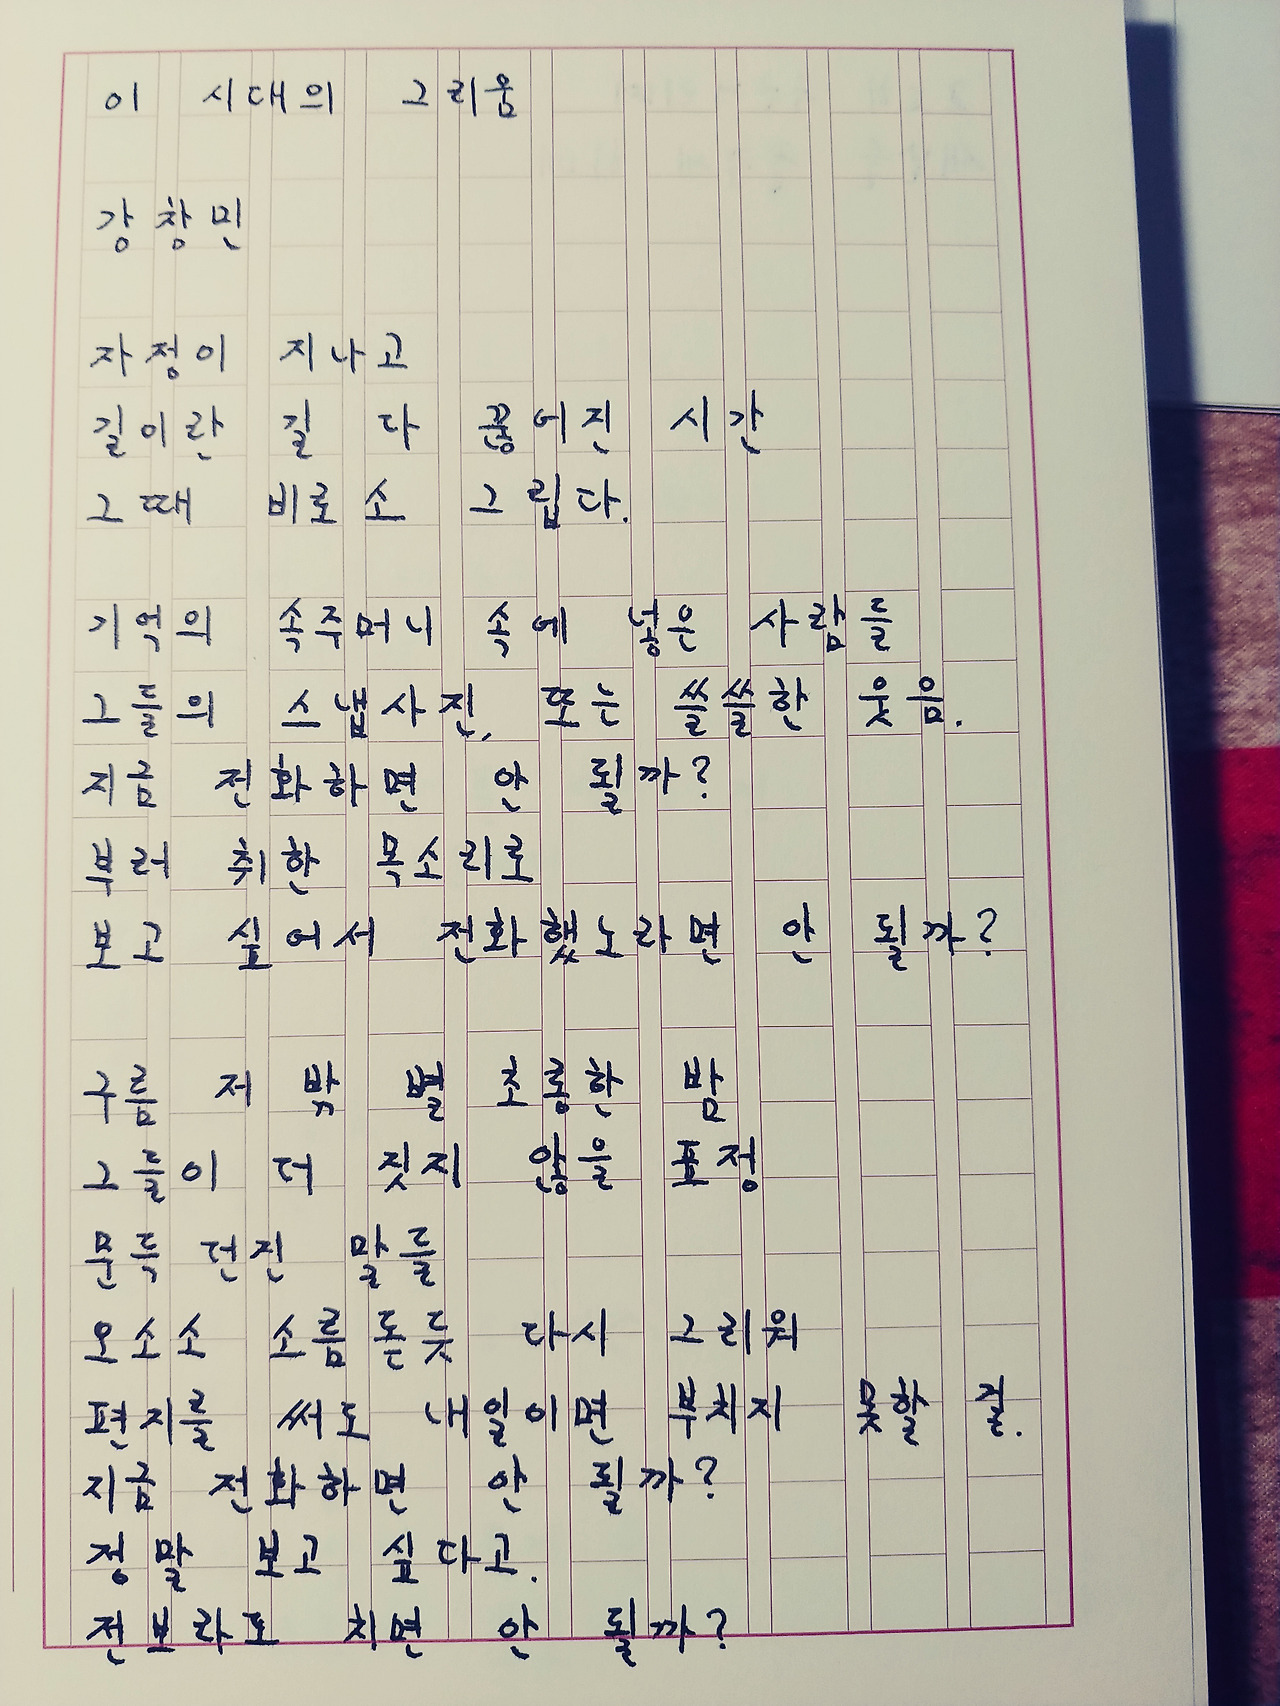 이 시대의 그리움
강창민
자정이 지나고
길이란 길 다 끊어진 시간
그때 비로소 그립다.
기억의 속주머니 속에 넣은 사람들
그들의 스냅사진, 또는 쓸쓸한 웃음.
지금 전화하면 안 될까?
부러 취한 목소리로
보고 싶어서 전화했노라면 안 될까?
구름 저 밖 별 초롱한 밤
그들이 더 짓지 않을 표정
문득 던진 말들
오소소 소름 돋듯 다시 그리워
편지를 써도 내일이면 부치지 못할 걸.
지금 전화하면 안 될까?
정말 보고 싶다고.
전보라도 치면 안 될까?